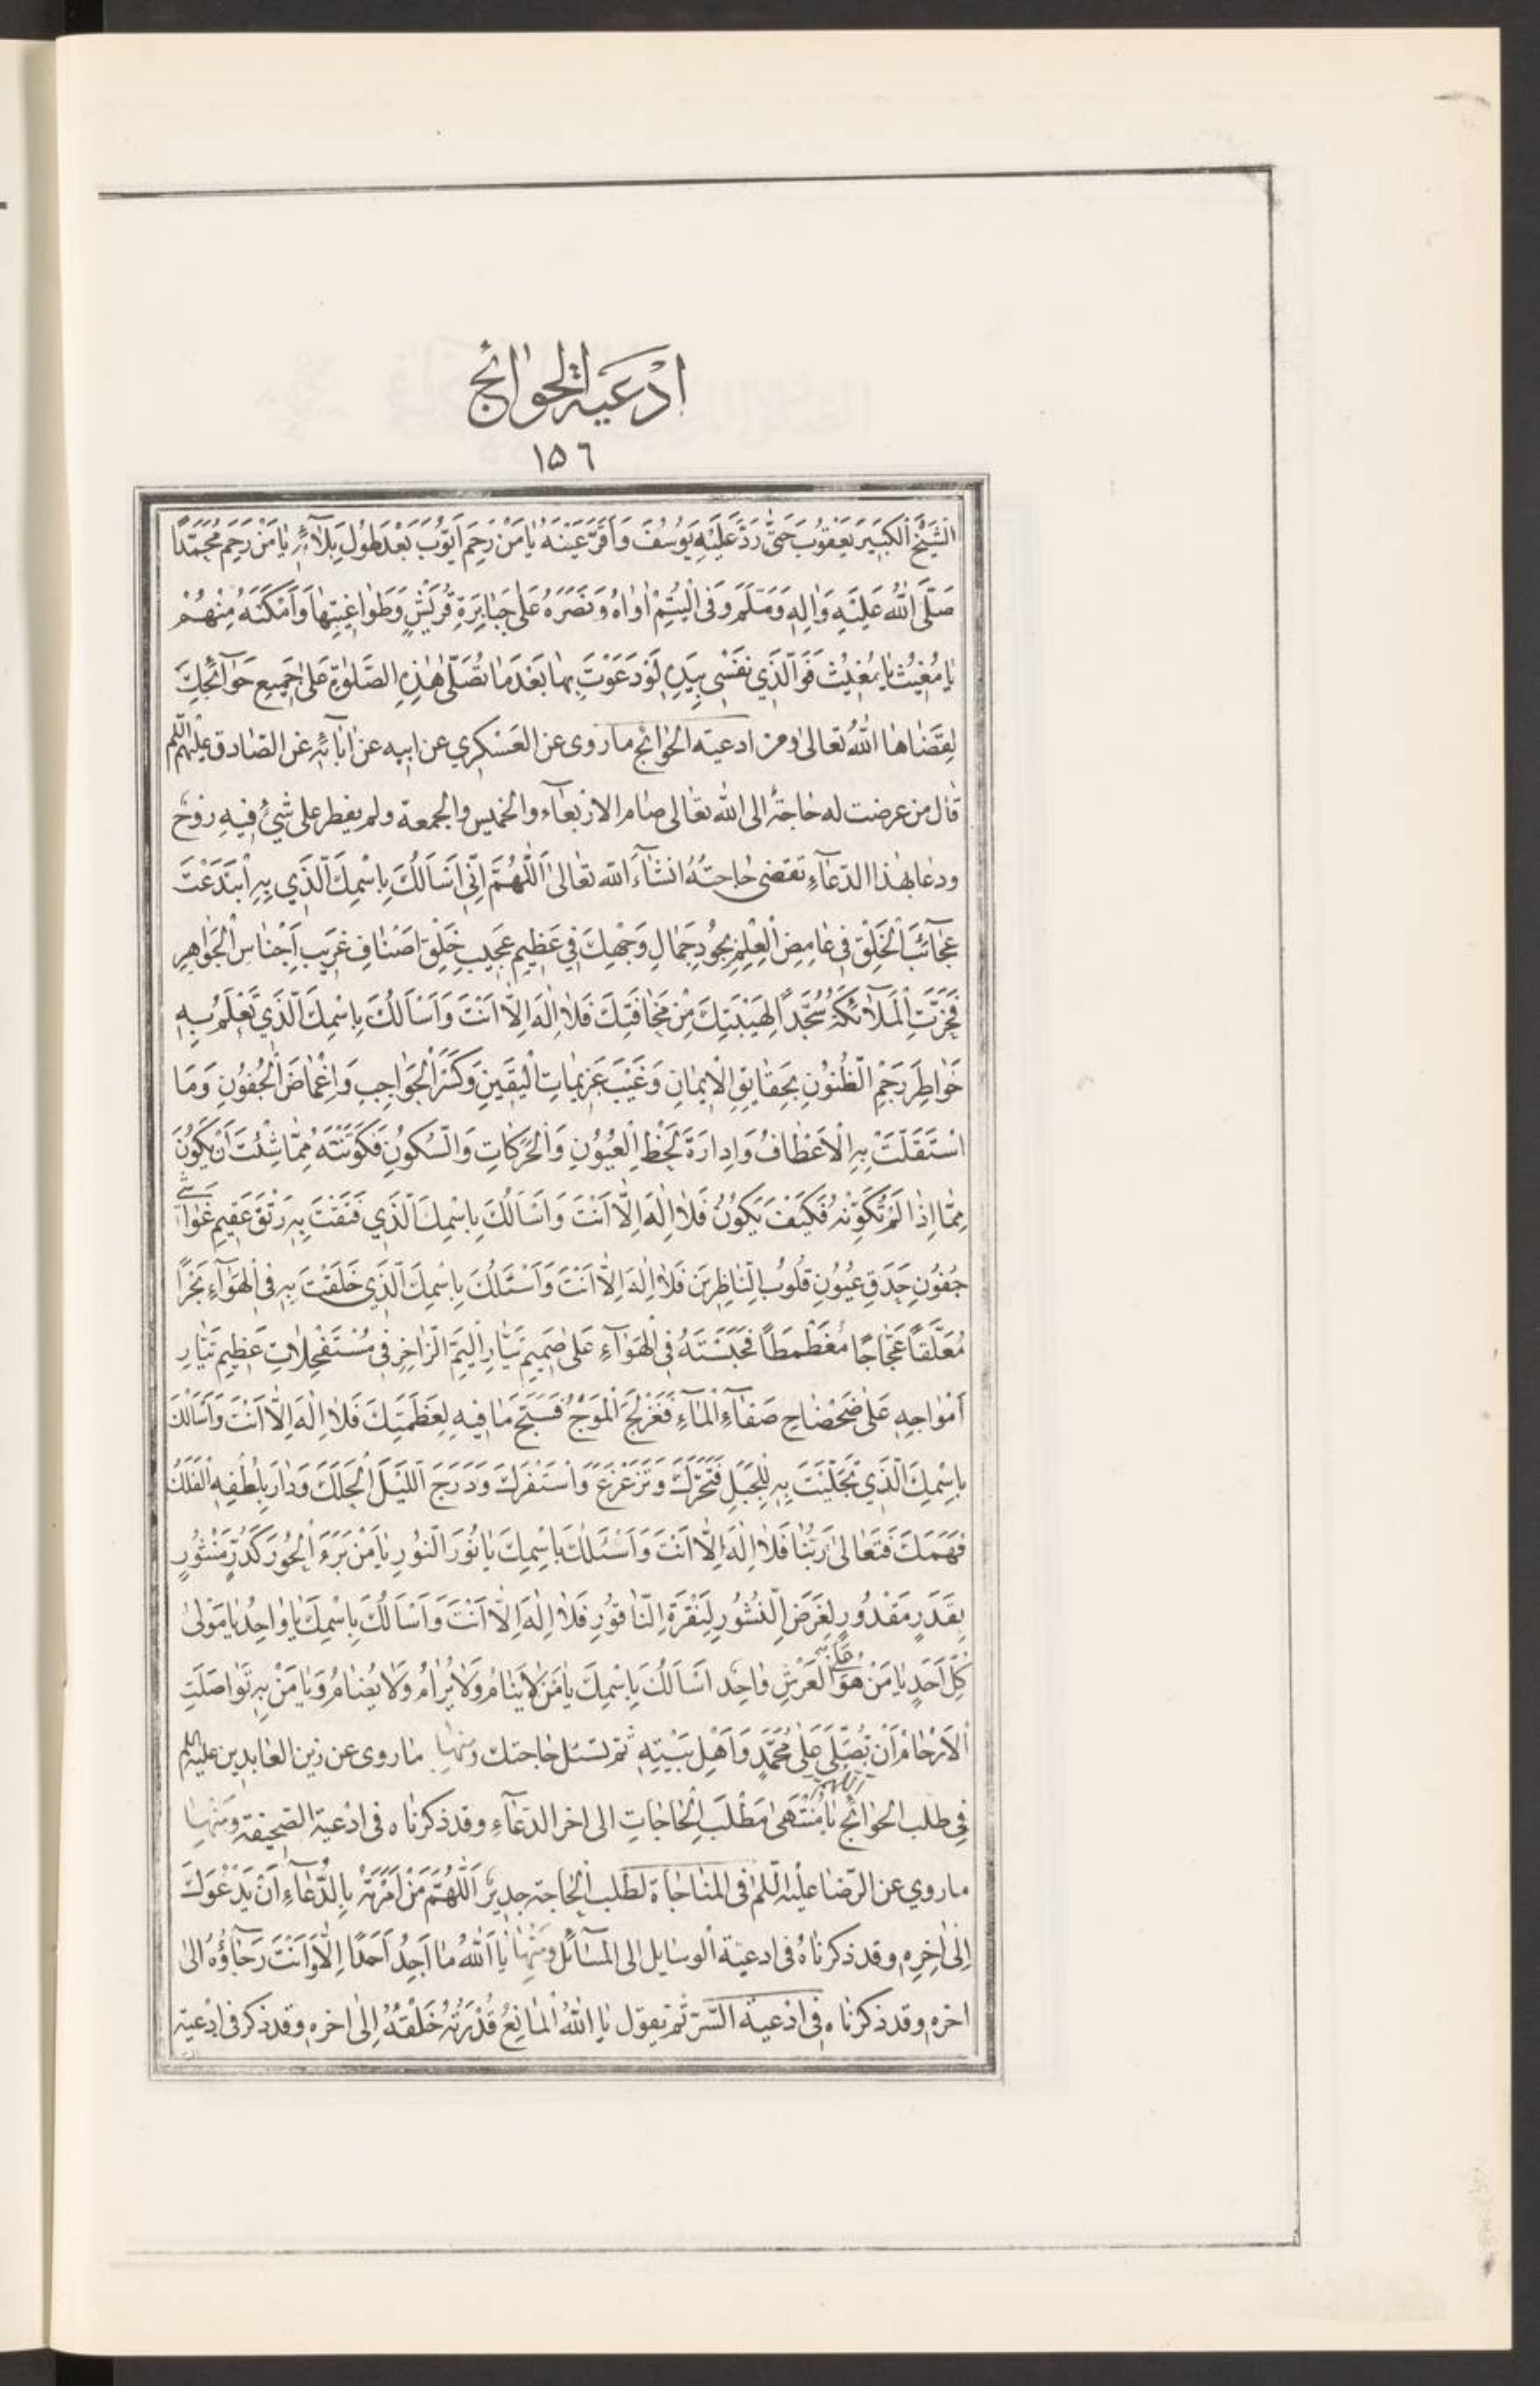 ادعية الحوائج
١٥٦
الشَّيْخَ الْكَبِيرَ يَعْقُوبَ حَتّٰى رَدَّ عَلَيْهِ يُوسُفَ وَاَقَرَّ عَيْنَهُ يٰا مَنْ رَحِمَ اَيُّوبَ بَعْدَ طُولِ بَلٰاۤئِهِ يٰا مَنْ رَحِمَ مُحَمَّدًا
صَلَّى اللّٰهُ عَلَيْهِ وَاٰلِهِ وَسَلَّمَ وَفِى الْيُتْمِ اٰوٰاهُ وَنَصَرَهُ عَلىٰ جَبٰابِرَةِ قُرَيْشٍ وَطَوٰاغِيتِهٰا وَاَمْكَنَهُ مِنْهُمْ
يٰا مُغِيثُ يٰا مُغِيثُ فَوَالَّذِي نَفْسِى بِيَدِهِ لَوْ دَعَوْتَ بِهٰا بَعْدَ مٰا تُصَلّٰى هٰذِهِ الصَّلٰوةِ عَلىٰ جَمِيعِ حَوٰاۤئِجِكَ
لقضٰاها اللّٰهُ تعالىٰ ومن ادعية الحوٰائج ما روى عن العَسْكرِي عن ابيه عن اٰبٰائه عن الصّادق عليهم السّلام
قٰال من عرضت له حٰاجة الى اللّٰه تعٰالى صٰام الاربعآء والخميس والجمعة ولم يفطر على شئ فيه روح
ودعٰا بهٰذا الدّعآءِ تقضىٰ حٰاجتُهُ انشآءَ اللّٰه تعٰالىٰ اَللّٰهُمَّ اِنِّى اَسْاَلُكَ بِاسْمِكَ الَّذِي بِهِ ابْتَدَعْتَ
عَجٰاۤئِبَ الْخَلْقِ فِى غٰامِضِ الْعِلْمِ بِجُودِ جَمٰالِ وَجْهِكَ فِي عَظِيمِ عَجِيبِ خَلْقِ اَصْنٰافِ غَرِيبِ اَجْنٰاسِ الْجَوٰاهِرِ
فَخَرَّتِ الْمَلٰاۤئِكَةُ سُجَّدًا لِهَيْبَتِكَ مِنْ مَخٰافَتِكَ فَلٰا اِلٰهَ اِلّٰا اَنْتَ وَاَسْاَلُكَ بِاسْمِكَ الَّذِي تَعْلَمُ بِهِ
خَوٰاطِرَ رَجْمِ الظُّنُونِ بِحَقٰايِقِ الْاِيمٰانِ وَغَيْبَ عَزِيمٰاتِ الْيَقِينِ وَكَسْرَ الْحَوٰاجِبِ وَاِغْمٰاضَ الْجُفُونِ وَمَا
اسْتَقَلَّتْ بِهِ الْاَعْطٰافُ وَاِدٰارَةَ لَحْظِ الْعُيُونِ وَالْحَرَكٰاتِ وَالسُّكُونِ فَكَوَّنْتَهُ مِمّٰا شِئْتَ اَنْ يَكُونَ
مِمّٰا اِذٰا لَمْ تُكَوِّنْهُ فَكَيْفَ يَكُونُ فَلٰا اِلٰهَ اِلّٰا اَنْتَ وَاَسْاَلُكَ بِاسْمِكَ الَّذِي فَتَقْتَ بِهِ رَتْقَ عَقِيمِ غَوٰاشِي
جُفُونِ حَدَقِ عُيُونِ قُلُوبِ النّٰاظِرِينَ فَلٰا اِلٰهَ اِلّٰا اَنْتَ وَاَسْئَلُكَ بِاسْمِكَ الَّذِي خَلَقْتَ بِهِ فِى الْهَوٰآءِ بَحْرًا
مُعَلَّقًا عَجّٰاجًا مُغَطْمَطًا فَحَبَسْتَهُ فِى الْهَوٰآءِ عَلىٰ صَمِيمِ تَيّٰارِ الْيَمِّ الزّٰاخِرِ فِى مُسْتَفْحِلٰاتِ عَظِيمِ تَيّٰارِ
اَمْوٰاجِهِ عَلىٰ ضَحْضٰاحِ صَفٰآءِ الْمٰآءِ فَعَزْلَجَ الْمَوْجُ فَسَبَّحَ مٰا فِيهِ لِعَظَمَتِكَ فَلٰا اِلٰهَ اِلّٰا اَنْتَ وَاَسْاَلُكَ
بِاسْمِكَ الَّذِي تَجَلَّيْتَ بِهِ لِلْجَبَلِ فَتَحَرَّكَ وَتَزَعْزَعَ وَاسْتَفْرَكَ وَدَرَجَ اللَّيْلَ الْحَلَكَ وَدٰارَ بِلُطْفِهِ الْفَلَكُ
فَهَمَكَ فَتَعٰالىٰ رَبُّنٰا فَلٰا اِلٰهَ اِلّٰا اَنْتَ وَاَسْئَلُكَ بِاسْمِكَ يٰا نُورَ النُّورِ يٰا مَنْ بَرَءَ الْحُورَ كَدُرٍّ مَنْثُورٍ
بِقَدَرٍ مَقْدُورٍ لِعَرَضِ النُّشُورِ لِنَقْرَةِ النّٰاقُورِ فَلٰا اِلٰهَ اِلّٰا اَنْتَ وَاَسْاَلُكَ بِاسْمِكَ يٰا وٰاحِدُ يٰا مَوْلىٰ
كُلِّ اَحَدٍ يٰا مَنْ هُوَ عَلَى الْعَرْشِ وٰاحِد اَسْاَلُكَ بِاسْمِكَ يٰا مَنْ لٰا يَنٰامُ وَلٰا يُرٰامُ وَلٰا يُضٰامُ وَيٰا مَنْ بِهِ تَوٰاصَلَتِ
الْاَرْحٰامُ اَنْ تُصَلِّيَ عَلىٰ مُحَمَّدٍ وَاَهْلِ بَيْتِهِ ثم تسئل حٰاجتك ومنهٰا مٰا روى عن زين العٰابدين عليه السلام
فِي طلب الحوٰائج اللهم يٰا مُنْتَهىٰ مَطْلَبِ الْحٰاجٰاتِ الى اخر الدعٰآءِ وقد ذكرنٰاه فى ادْعية الصحيفة ومنهٰا
ما روي عن الرّضٰا عليه السّلم فى المنٰاجٰاة لطلب الحٰاجة جدير اَللّٰهُمَّ مَنْ اَمَرْتَهُ بِالدُّعٰآءِ اَنْ يَدْعُوَكَ
اِلىٰ اٰخِرِهِ وقد ذكرنٰاهُ فى ادعية الوسايل الى المسآئل ومنهٰا يٰا اَللّٰهُ مٰا اَجِدُ اَحَدًا اِلّٰا وَاَنْتَ رَجٰاۤؤُهُ الىٰ
اخره وقد ذكرنٰاه فى ادْعية السّر ثم يقول يٰا اَللّٰهُ الْمٰانِعُ قُدْرَتُهُ خَلْقَهُ اِلىٰ اخره وقد ذكر فى ادْعية